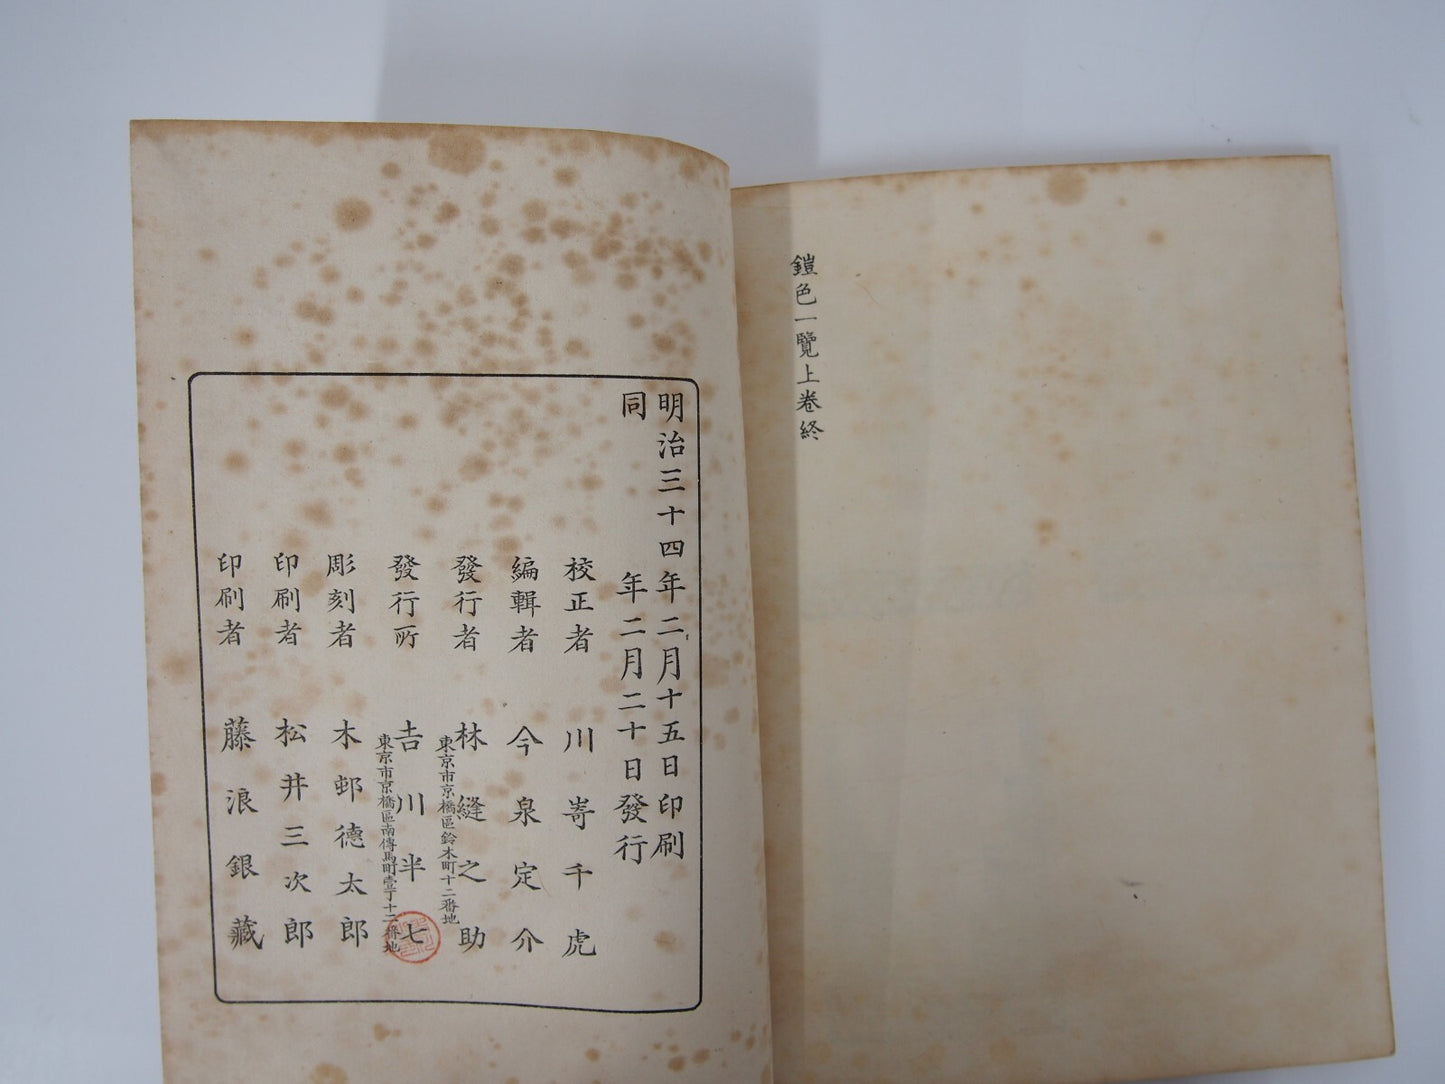 鎧色一覽上卷終
明治三十四年二月十五日印刷
同　年二月二十日發行
校正者　川嵜千虎
編輯者　今泉定介
東京市京橋區鈴木町十二番地
發行者　林縫之助
東京市京橋區南傳馬町壹丁十二番地
發行所　吉川半七
彫刻者　木邨德太郎
印刷者　松井三次郎
印刷者　藤浪銀藏